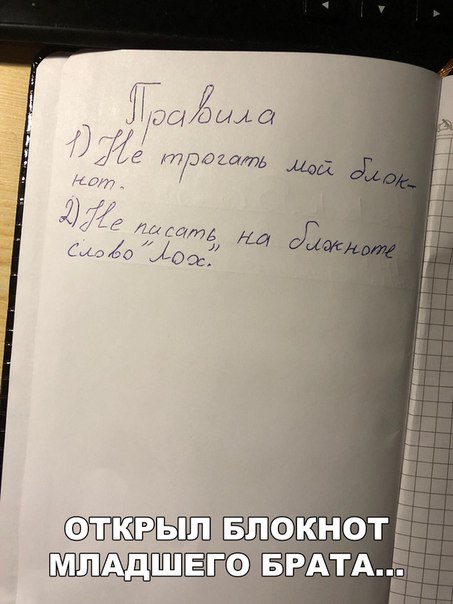 Правила
1) Не трогать мой блок-
нот.
2) Не писать на блокноте
слово "Лох".
ОТКРЫЛ БЛОКНОТ
МЛАДШЕГО БРАТА...